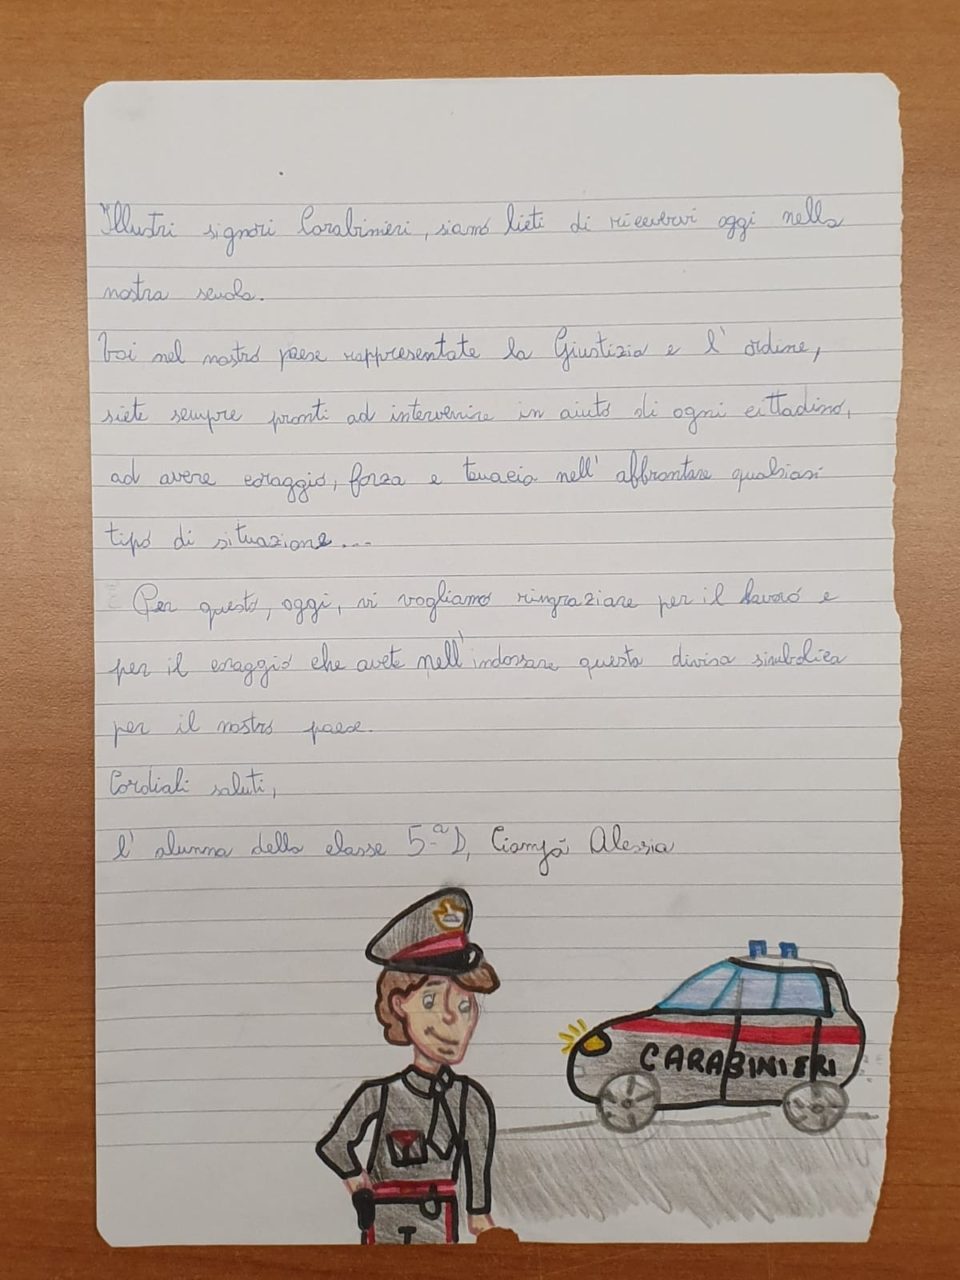 Illustri signori Carabinieri, siamo lieti di ricevervi oggi nella
nostra scuola.
Voi nel nostro paese rappresentate la Giustizia e l'ordine,
siete sempre pronti ad intervenire in aiuto di ogni cittadino,
ad avere coraggio, forza e tenacia nell'affrontare qualsiasi
tipo di situazione...
Per questo, oggi, vi vogliamo ringraziare per il lavoro e
per il coraggio che avete nell'indossare questa divisa simbolica
per il nostro paese.
Cordiali saluti,
l'alunna della classe 5ª D, Ciampà Alessia
CARABINIERI